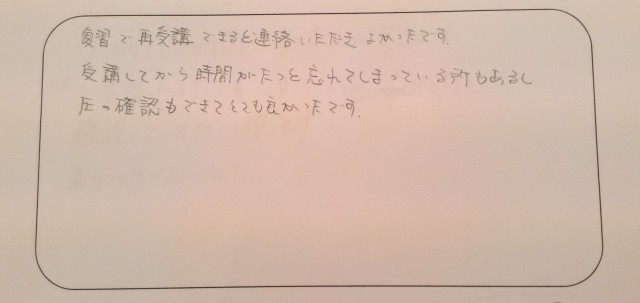 復習で再受講できると連絡いただき よかったです。
受講してから時間がたつと忘れてしまっている所もあるし
圧の確認もできてとても良かったです。